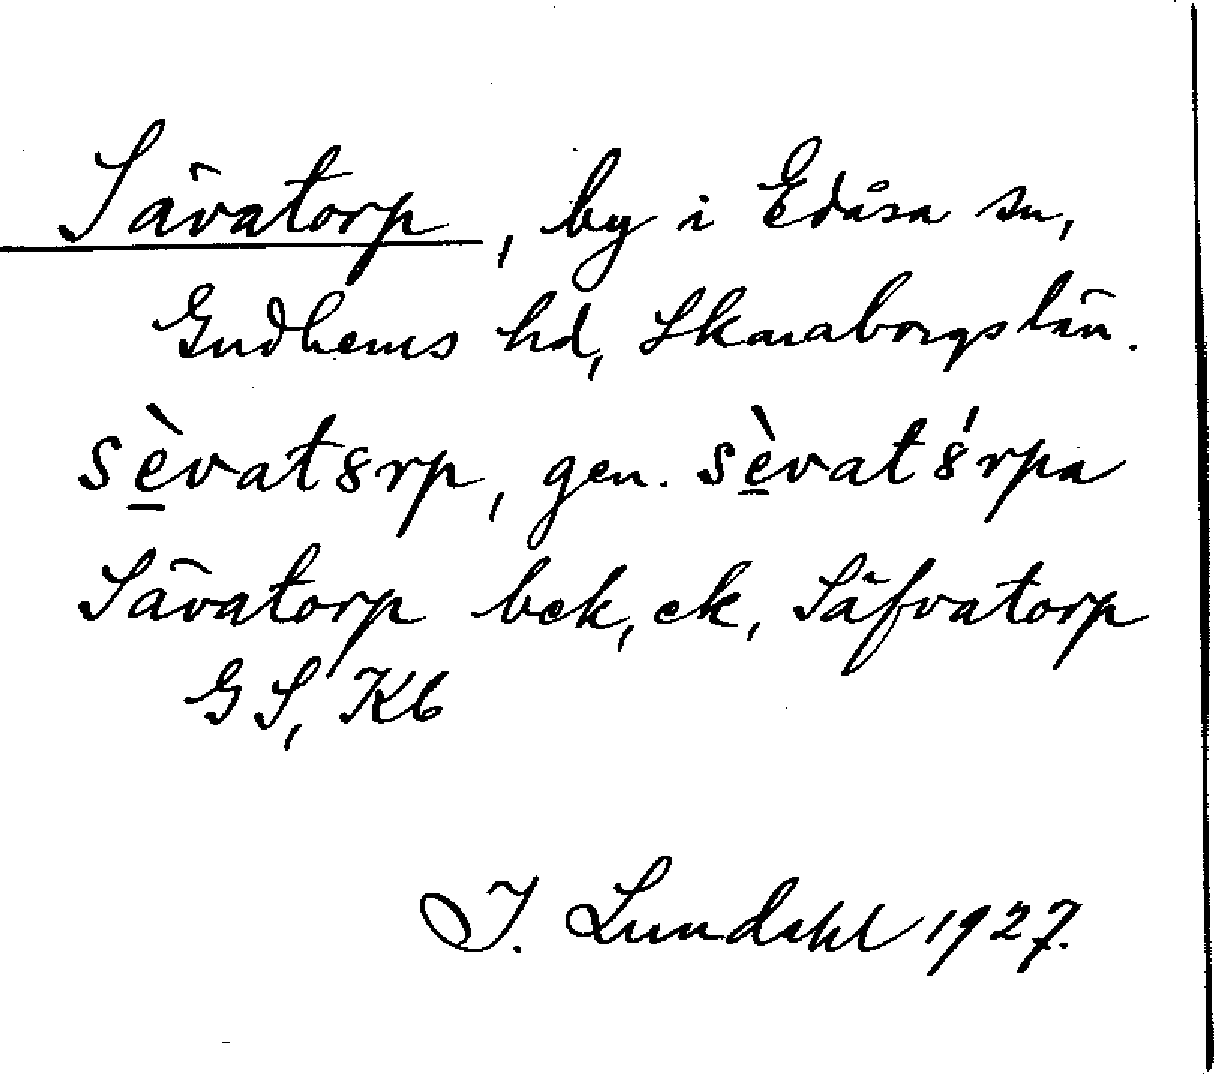 Sävatorp, by i Edåsa sn,
Gudhems hd, Skaraborgs län.
sè̱vatȣrp, gen. sè̱vatȣ́rpa
Sävatorp bek, ek, Säfvatorp
GS, Kb
I. Lundahl 1927.